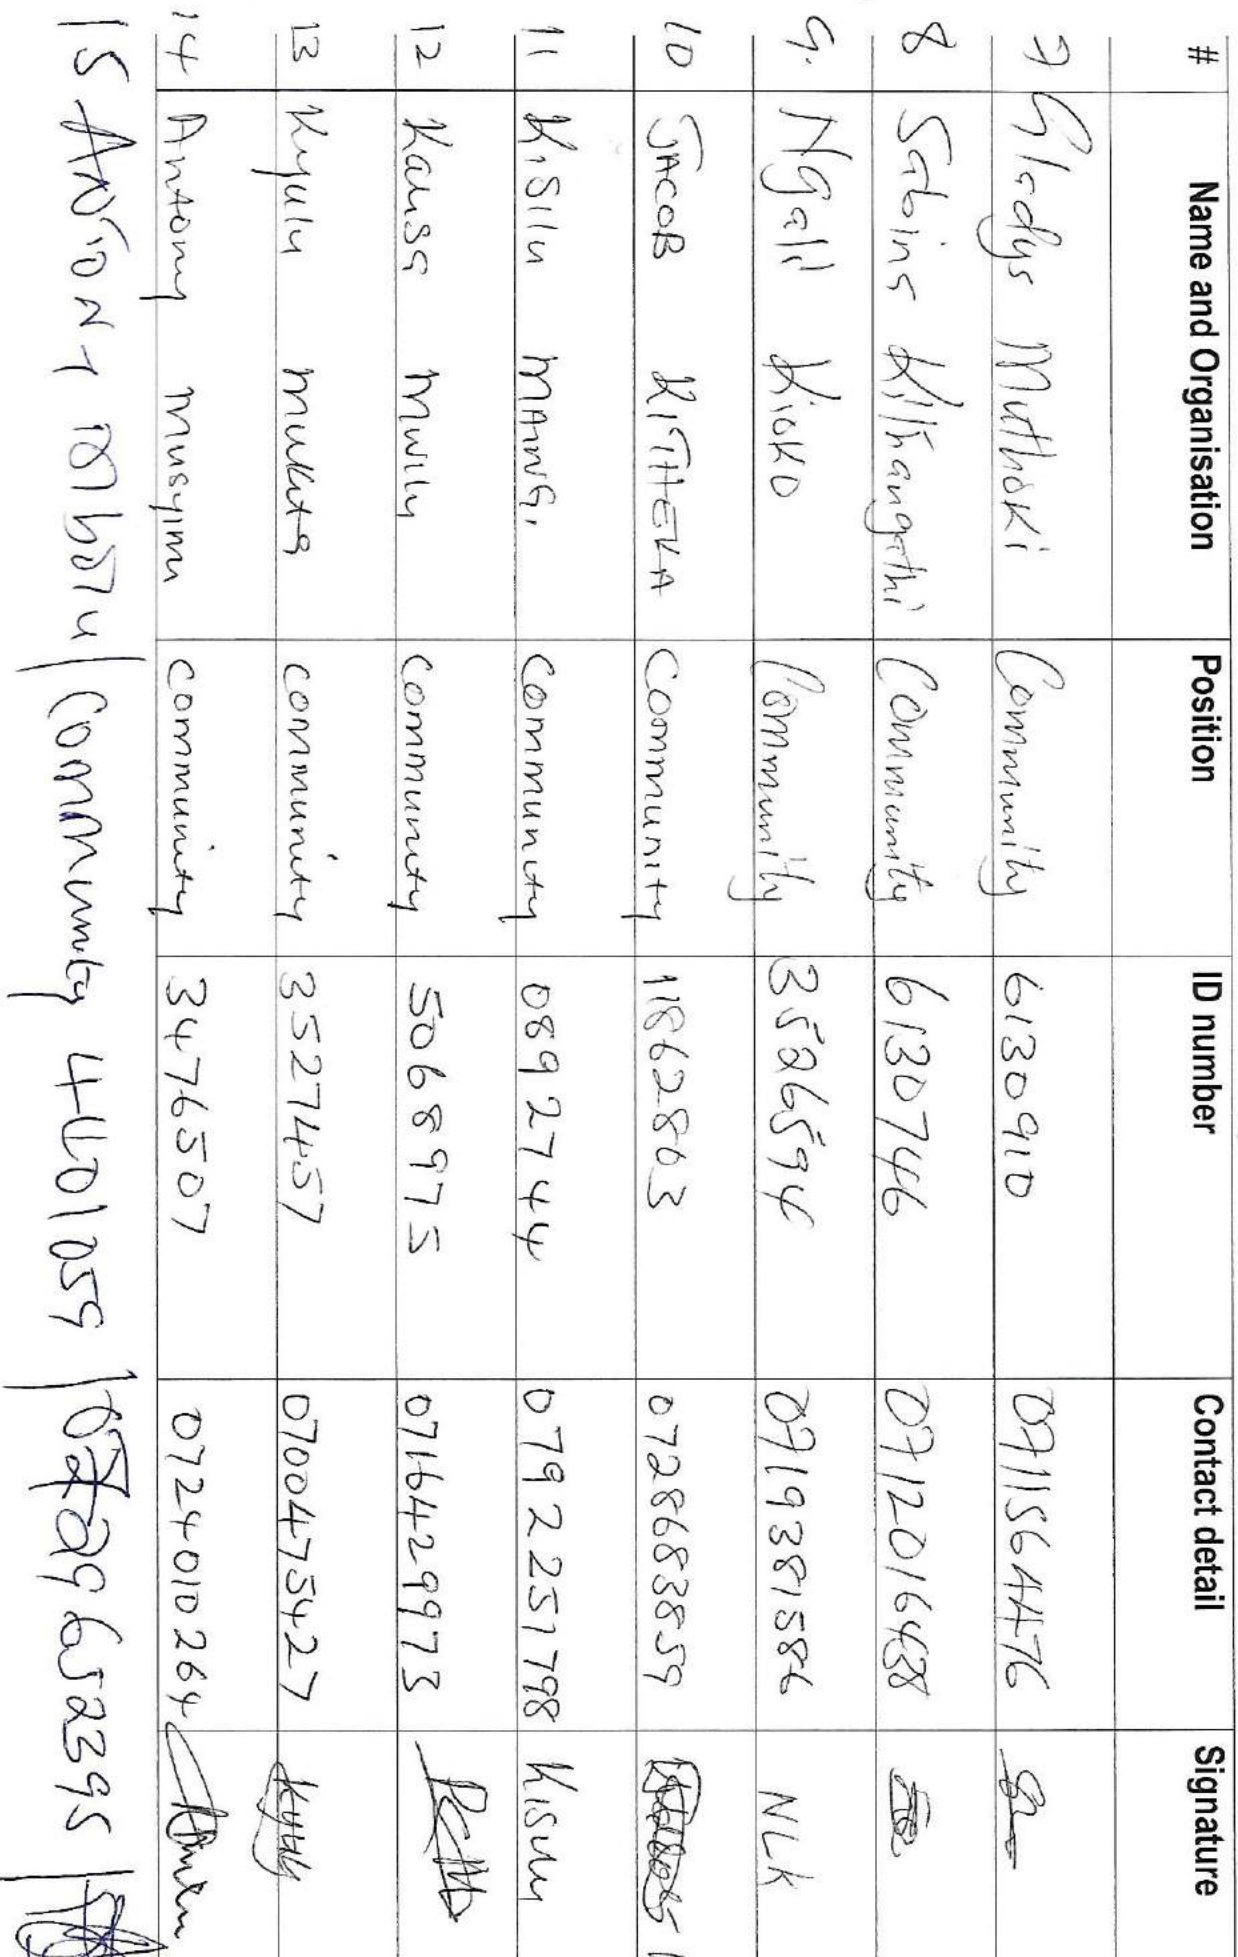 # Name and Organisation Position ID number Contact detail Signature
7 Gladys Muthoki Community 6130910 0711564476
8 Sabina Kilthangathi Community 6130746 0712016438
9. Ngali Kioko Community 3526594 0719381586 NLK
10 JACOB KITHEKA Community 11862803 0728683859
11 Kisilu MAINGI Community 0892744 0792251798 Kisilu
12 Kausa Mwilu Community 5068975 0716429973
13 Kyulu mukuta community 3527457 0700475427
14 Antony Musyimi community 3476507 0724010264
15 ANTONY Community 4401059 0729652395